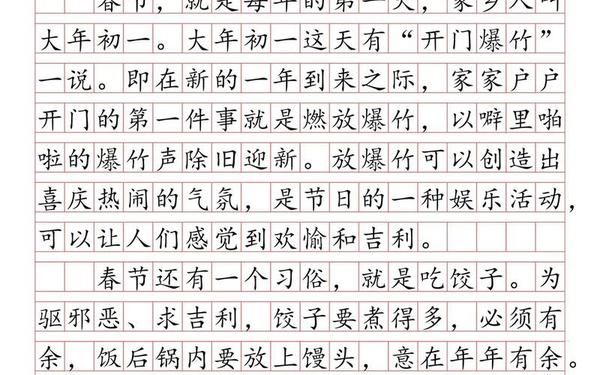 春节，就是每年的第一天，家乡人叫
大年初一。大年初一这天有“开门爆竹”
一说。即在新的一年到来之际，家家户户
开门的第一件事就是燃放爆竹，以噼里啪
啦的爆竹声除旧迎新。放爆竹可以创造出
喜庆热闹的气氛，是节日的一种娱乐活动，
可以让人们感觉到欢愉和吉利。
春节还有一个习俗，就是吃饺子。为
驱邪恶、求吉利，饺子要煮得多，必须有
余，饭后锅内要放上馒头，意在年年有余。